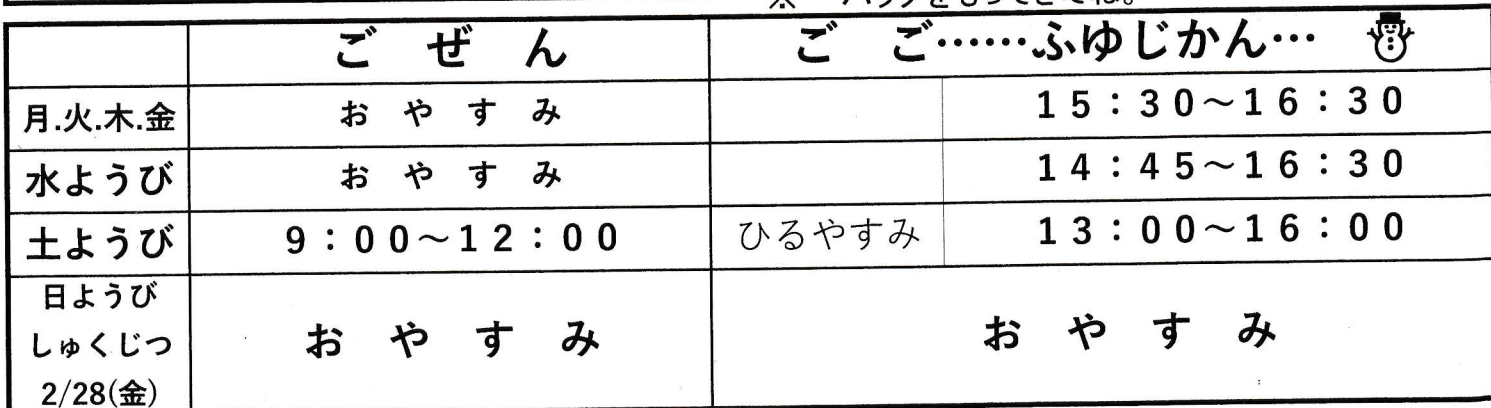 ごぜん ごご……ふゆじかん…
月.火.木.金 おやすみ 15:30～16:30
水ようび おやすみ 14:45～16:30
土ようび 9:00～12:00 ひるやすみ 13:00～16:00
日ようび
しゅくじつ
2/28(金)
おやすみ おやすみ